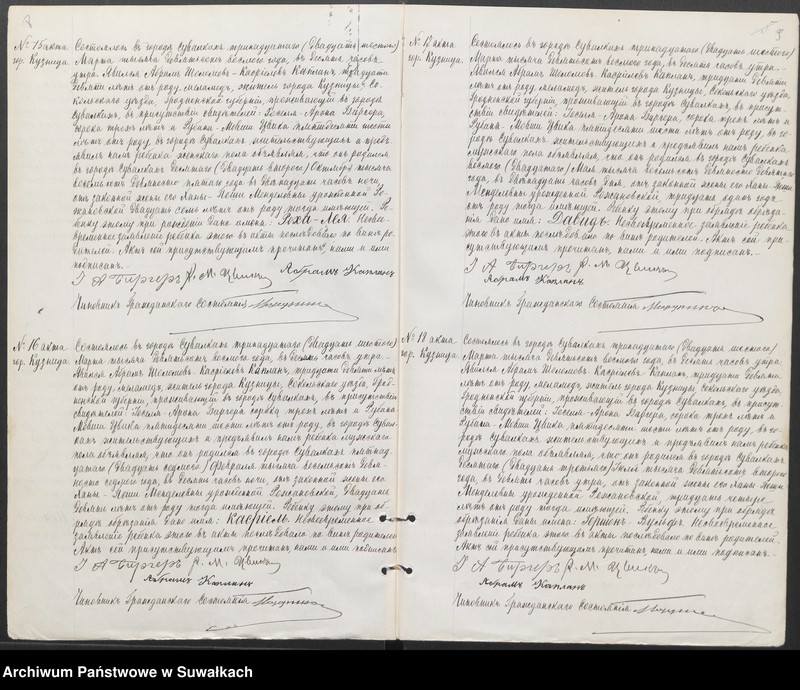 № 15 акта
гор. Кузница
Состоялось въ городѣ Сувалкахъ тринадцатаго (двадцать шестого)
Марта тысяча девятьсотъ восьмого года, въ десять часовъ
утра. Явился Абрамъ Шеломовъ-Касріелевъ Капланъ, тридцати
девяти лѣтъ отъ роду, меламедъ, житель города Кузницы, Со-
кольскаго уѣзда, Гродненской губерніи, проживающій въ городѣ
Сувалкахъ, въ присутствіи свидѣтелей: Госеля-Арона Биргера,
сорока трехъ лѣтъ и Рувина-Мовши Цвика пятидесяти шести
лѣтъ отъ роду, въ городѣ Сувалкахъ жительствующихъ и предъ-
явилъ намъ ребенка женскаго пола объявляя, что онъ родился
въ городѣ Сувалкахъ десятаго (двадцать второго) Октября тысяча
восемьсотъ девяносто пятаго года въ двѣнадцать часовъ ночи
отъ законной жены его Ханы-Пеши Менделевны урожденной Ро-
жановской, двадцать семь лѣтъ отъ роду тогда имѣющей. Ре-
бенку этому при рожденіи дано имена: Роха-Лея. Несвое-
временное заявленіе ребенка этого въ акты послѣдовало по винѣ ро-
дителей. Актъ сей присутствующимъ прочитанъ, нами и ими
подписанъ.
І А Биргеръ Р. М. Цвикъ Абрамъ Капланъ
Чиновникъ Гражданскаго Состоянія
№ 16 акта
гор. Кузница
Состоялось въ городѣ Сувалкахъ тринадцатаго (двадцать шестого)
Марта тысяча девятьсотъ восьмого года, въ десять часовъ утра.
Явился Абрамъ Шеломовъ Касріелевъ Капланъ, тридцати девяти лѣтъ
отъ роду, меламедъ, житель города Кузницы, Сокольскаго уѣзда, Грод-
ненской губерніи, проживающій въ городѣ Сувалкахъ, въ присутствіи
свидѣтелей: Госеля-Арона Биргера сорока трехъ лѣтъ и Рувина
Мовши Цвика пятидесяти шести лѣтъ отъ роду, въ городѣ Сувал-
кахъ жительствующихъ и предъявилъ намъ ребенка мужскаго
пола объявляя, что онъ родился въ городѣ Сувалкахъ пятнад-
цатаго (двадцать седьмого) Февраля тысяча восемьсотъ девя-
носто седьмого года, въ десять часовъ ночи, отъ законной жены его
Ханы-Пеши Менделевны урожденной Рожановской, двадцать
девять лѣтъ отъ роду тогда имѣющей. Ребенку этому при об-
рядѣ обрѣзанія дано имя: Касріель. Несвоевременное
заявленіе ребенка этого въ акты послѣдовало по винѣ родителей
Актъ сей присутствующимъ прочитанъ, нами и ими подписанъ
І А Биргеръ Р. М. Цвикъ
Абрамъ Капланъ
Чиновникъ Гражданскаго Состоянія
3
№ 17 акта
гор. Кузница.
Состоялось въ городѣ Сувалкахъ тринадцатаго (двадцать шестого)
Марта тысяча девятьсотъ восьмого года, въ десять часовъ утра.
Явился Абрамъ Шеломовъ-Касріелевъ Капланъ, тридцати девяти
лѣтъ отъ роду, меламедъ, житель города Кузницы, Сокольскаго уѣзда,
Гродненской губерніи, проживающій въ городѣ Сувалкахъ, въ присут-
ствіи свидѣтелей: Госеля-Арона Биргера, сорока трехъ лѣтъ и
Рувина-Мовши Цвика пятидесяти шести лѣтъ отъ роду, въ го-
родѣ Сувалкахъ жительствующихъ и предъявилъ намъ ребенка
мужскаго пола объявляя, что онъ родился въ городѣ Сувалкахъ
восьмого (двадцатаго) Мая тысяча восемьсотъ девяносто девятаго
года, въ двѣнадцать часовъ дня, отъ законной жены его Ханы-Пеши
Менделевны урожденной Рожановской, тридцать одинъ годъ
отъ роду тогда имѣющей. Ребенку этому при обрядѣ обрѣза-
нія дано имя: Давидъ. Несвоевременное заявленіе ребенка
этого въ акты послѣдовало по винѣ родителей. Актъ сей при-
сутствующимъ прочитанъ, нами и ими подписанъ.
І А Биргеръ Р. М. Цвикъ
Абрамъ Капланъ
Чиновникъ Гражданскаго Состоянія
№ 18 акта
гор. Кузница.
Состоялось въ городѣ Сувалкахъ тринадцатаго (двадцать шестого)
Марта тысяча девятьсотъ восьмого года, въ десять часовъ утра.
Явился Абрамъ Шеломовъ Касріелевъ Капланъ, тридцати девяти
лѣтъ отъ роду, меламедъ, житель города Кузницы, Сокольскаго уѣзда,
Гродненской губерніи, проживающій въ городѣ Сувалкахъ, въ присут-
ствіи свидѣтелей: Госеля-Арона Биргера, сорока трехъ лѣтъ и
Рувина-Мовши Цвика, пятидесяти шести лѣтъ отъ роду, въ го-
родѣ Сувалкахъ жительствующихъ и предъявилъ намъ ребенка
мужскаго пола объявляя, что онъ родился въ городѣ Сувалкахъ
десятаго (двадцать третьяго) Іюля тысяча девятьсотъ второго
года, въ девять часовъ утра, отъ законной жены его Ханы-Пеши
Менделевны урожденной Рожановской, тридцать четыре
лѣтъ отъ роду тогда имѣющей. Ребенку этому при обрядѣ
обрѣзанія даны имена: Гершонъ-Вульфъ. Несвоевременное
заявленіе ребенка этого въ акты послѣдовало по винѣ родителей.
Актъ сей присутствующимъ прочитанъ нами и ими подписанъ.
І А Биргеръ Р. М. Цвикъ
Абрамъ Капланъ
Чиновникъ Гражданскаго Состоянія
Archiwum Państwowe w Suwałkach